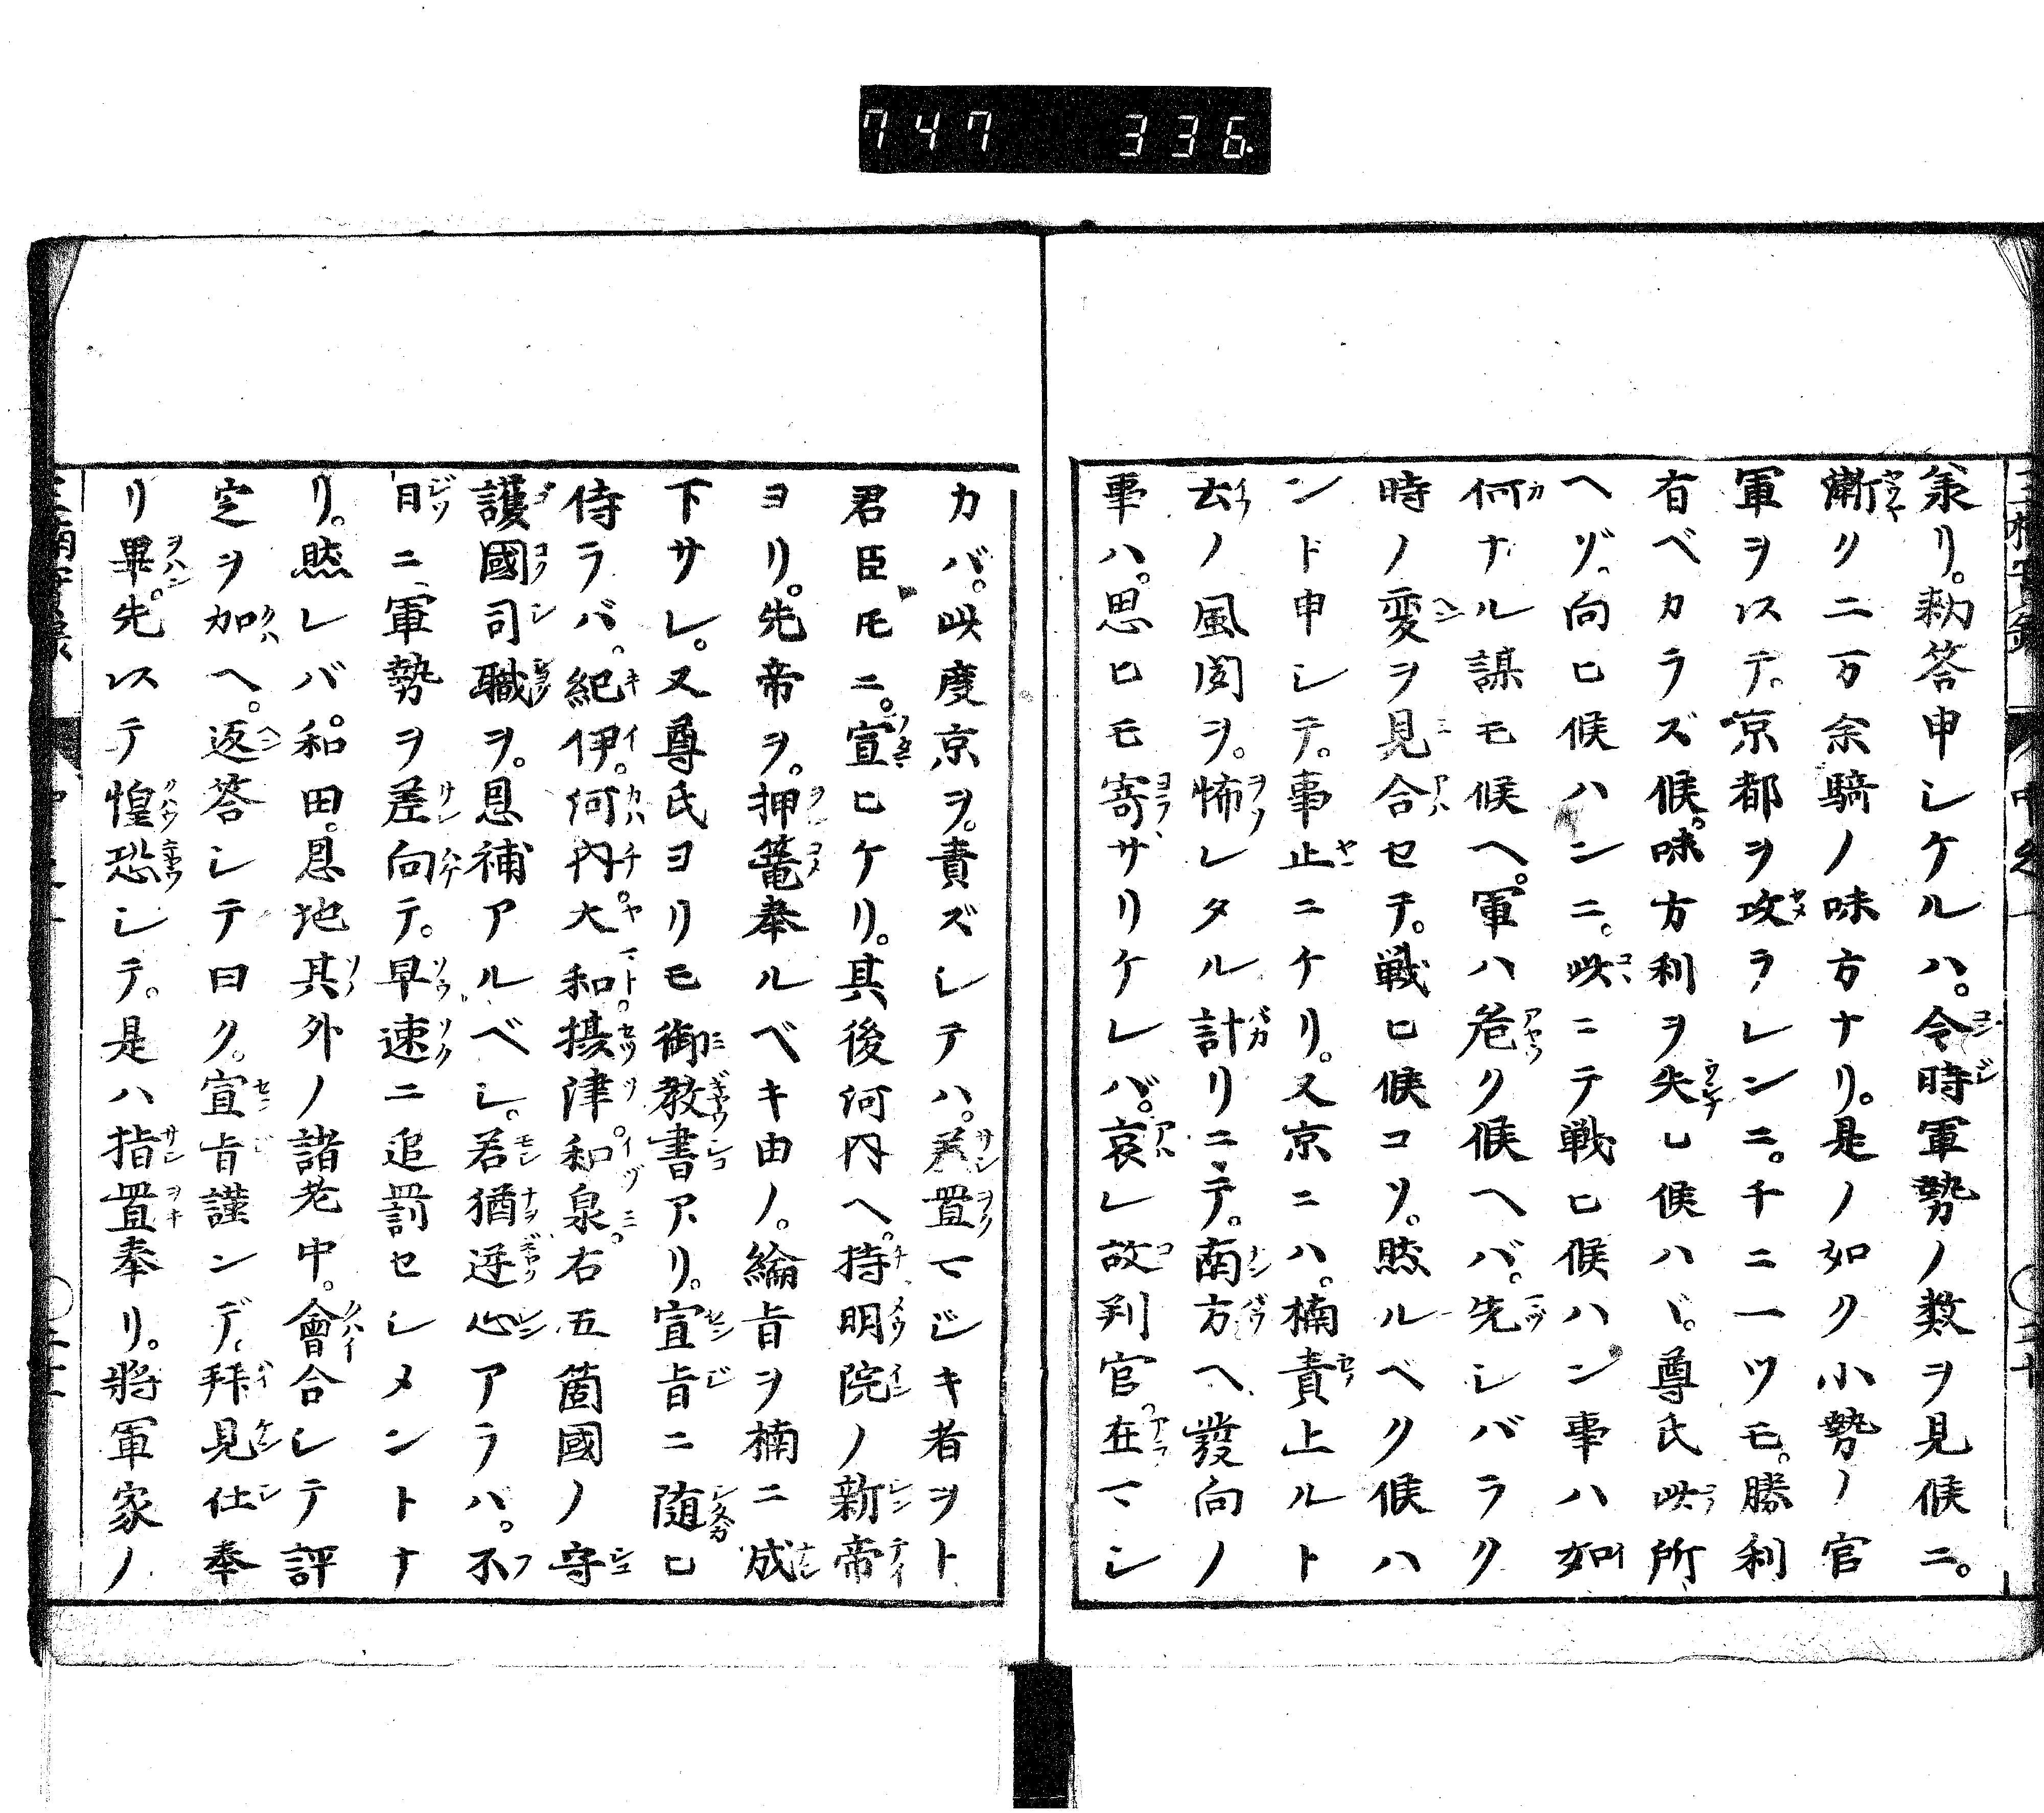 747 336.
来リ。勅答申シケルハ。今時軍勢ノ数ヲ見候ニ。
漸クニ万余騎ノ味方ナリ。是ノ如ク小勢ノ官
軍ヲ以テ。京都ヲ攻ラレンニ。千ニ一ツモ。勝利
有ベカラズ候。味方利ヲ失ヒ候ハヾ。尊氏此所
ヘゾ。向ヒ候ハンニ。此ニテ戦ヒ候ハン事ハ如
何ナル謀モ候ヘ。軍ハ危ク候ヘバ。先シバラク
時ノ変ヲ見合セテ。戦ヒ候コソ。然ルベク候ハ
ンド申シテ。事止ニケリ。又京ニハ。楠責上ルト
云ノ風聞ヲ。怖レタル計リニテ。南方ヘ發向ノ
事ハ。思ヒモ寄サリケレバ。哀レ故判官。在マシ
カバ。此度京ヲ。責ズシテハ。差置マジキ者ヲト
君臣モニ。宣ヒケリ。其後河内ヘ。持明院ノ新帝
ヨリ。先帝ヲ。押篭奉ルベキ由ノ。綸旨ヲ楠ニ成
下サレ。又尊氏ヨリモ御教書アリ。宣旨ニ随ヒ
侍ラバ。紀伊。河内。大和。摂津。和泉。右五箇國ノ守
護國司職ヲ。恩補アルベシ。若猶逆心アラハ。不
日ニ軍勢ヲ差向テ。早速ニ追罰セシメントナ
リ。然レバ。和田。恩地其外ノ諸老中。會合シテ評
定ヲ加ヘ。返答シテ曰ク。宣旨謹ンデ。拜見仕奉
リ畢。先以テ惶恐シテ。是ハ指置奉リ。將軍家ノ